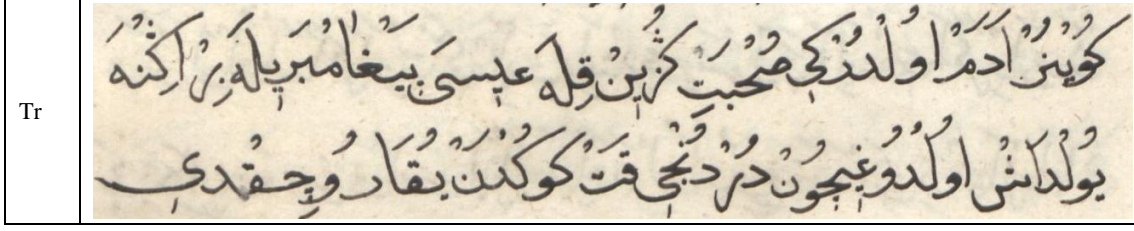 Tr
كُوينُرْ اَدَمْ اولْدُرْكِي صُحْبَتِ كُزِينْ قِلَه عِيسَى پَيْغَامْبَرِيلَه بِرْ اِكْنَه
يُولْدَاشْ اولْدُوغِيچُونْ دُرْدُنْجِي قَتْ كوكْدَنْ يُقَارُو چِقْدِي